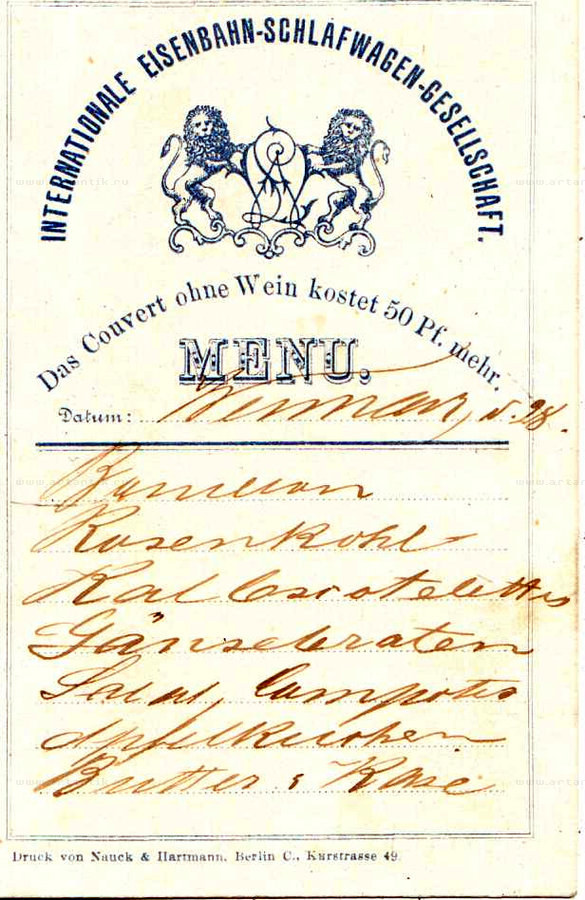 INTERNATIONALE EISENBAHN-SCHLAFWAGEN-GESELLSCHAFT.
Das Couvert ohne Wein kostet 50 Pf. mehr.
MENU.
Datum: Weimar, d. 28.
Bouillon
Rosenkohl
Kalbscotelettes
Gänsebraten
Salat, Compotes
Apfelkuchen
Butter & Käse
Druck von Nauck & Hartmann, Berlin C., Kurstrasse 49.